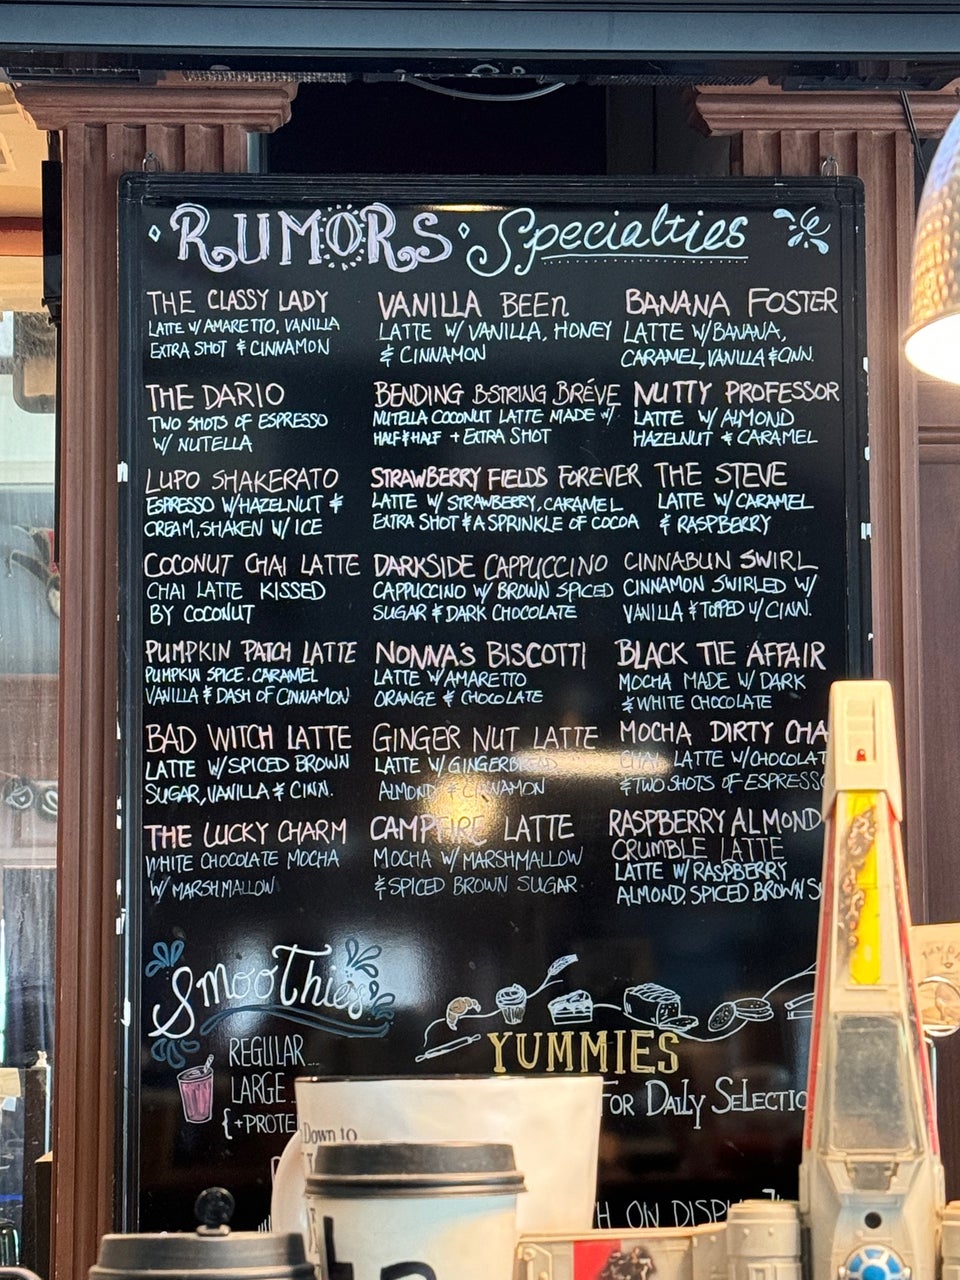 RUMORS Specialties
THE CLASSY LADY
LATTE W/AMARETTO, VANILLA
EXTRA SHOT & CINNAMON
THE DARIO
TWO SHOTS OF ESPRESSO
W/ NUTELLA
LUPO SHAKERATO
ESPRESSO W/HAZELNUT &
CREAM, SHAKEN W/ ICE
COCONUT CHAI LATTE
CHAI LATTE KISSED
BY COCONUT
PUMPKIN PATCH LATTE
PUMPKIN SPICE. CARAMEL
VANILLA & DASH OF CINNAMON
BAD WITCH LATTE
LATTE W/SPICED BROWN
SUGAR, VANILLA & CINN.
THE LUCKY CHARM
WHITE CHOCOLATE MOCHA
W/ MARSHMALLOW
VANILLA BEEn
LATTE W/VANILLA, HONEY
& CINNAMON
BENDING B-STRING BRÉVE
NUTELLA COCONUT LATTE MADE W/
HALF & HALF + EXTRA SHOT
STRAWBERRY FIELDS FOREVER
LATTE W/ STRAWBERRY, CARAMEL
EXTRA SHOT & A SPRINKLE OF COCOA
DARKSIDE CAPPUCCINO
CAPPUCCINO W/ BROWN SPICED
SUGAR & DARK CHOCOLATE
NONNA'S BISCOTTI
LATTE W/AMARETTO
ORANGE & CHOCOLATE
GINGER NUT LATTE
LATTE W/GINGERBREAD
ALMOND & CINNAMON
CAMPFIRE LATTE
MOCHA W/ MARSHMALLOW
& SPICED BROWN SUGAR
BANANA FOSTER
LATTE W/BANANA,
CARAMEL, VANILLA & CINN.
NUTTY PROFESSOR
LATTE W/ ALMOND
HAZELNUT & CARAMEL
THE STEVE
LATTE W/ CARAMEL
& RASPBERRY
CINNABUN SWIRL
CINNAMON SWIRLED W/
VANILLA & TOPPED W/ CINN.
BLACK TIE AFFAIR
MOCHA MADE W/ DARK
& WHITE CHOCOLATE
MOCHA DIRTY CHA
CHAI LATTE W/CHOCOLAT
& TWO SHOTS OF ESPRESSO
RASPBERRY ALMOND
CRUMBLE LATTE
LATTE W/ RASPBERRY
ALMOND, SPICED BROWN S
Smoothies
REGULAR...
LARGE..
{+PROTE
YUMMIES
FOR DAILY SELECTIO
Down to
H ON DISPL